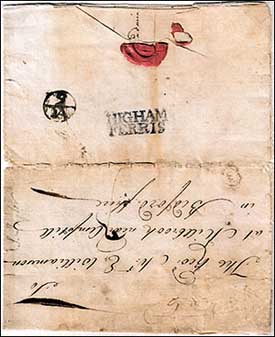 HIGHAM
FERRIS
To
The Rev. Mr. E Williamson
at Millbrook near Ampthill
in Bedford Shire